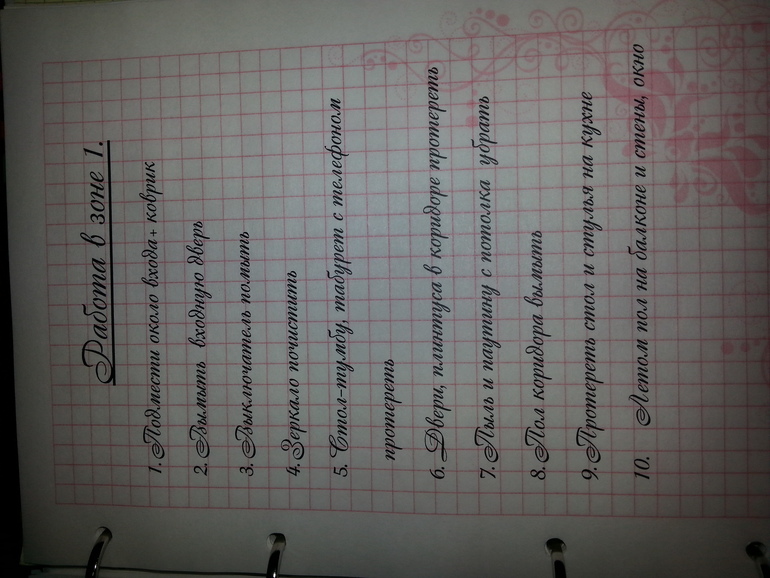 Работа в зоне 1.
1. Подмести около входа+ коврик
2. Вымыть входную дверь
3. Выключатель помыть
4. Зеркало почистить
5. Стол-тумбу, табурет с телефоном
протереть
6. Двери, плинтуса в коридоре протереть
7. Пыль и паутину с потолка убрать
8. Пол коридора вымыть
9. Протереть стол и стулья на кухне
10. Летом пол на балконе и стены, окно